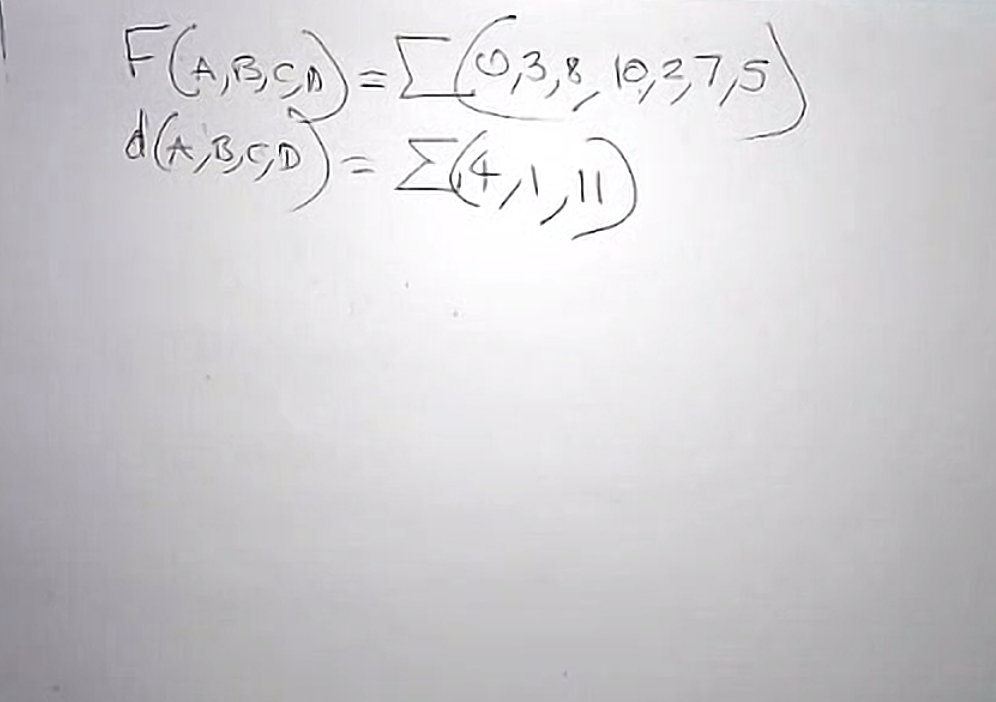 F(A,B,C,D) = Σ(0,3,8,10,2,7,5)
d(A,B,C,D) = Σ(4,1,11)